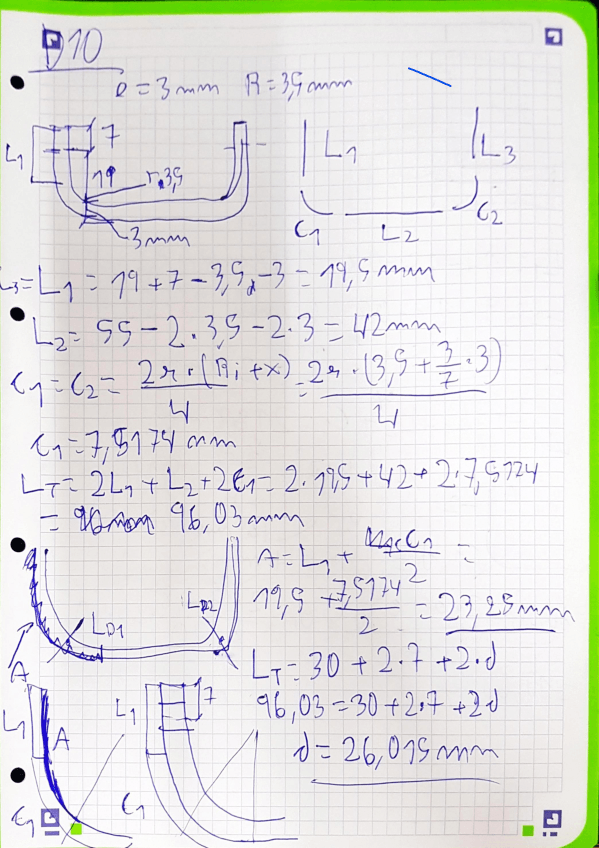 D10
e = 3mm R = 3,5mm
L1 7 19 r.3,5 3mm
L1 L3 C1 L2 C2
L3 = L1 = 19 + 7 - 3,5 - 3 = 19,5mm
L2 = 55 - 2·3,5 - 2·3 = 42mm
C1 = C2 = 2π·(Ri + x) / 4 = 2π·(3,5 + 3/7·3) / 4
C1 = 7,5174 mm
LT = 2L1 + L2 + 2C1 = 2·19,5 + 42 + 2·7,5174
= 96,03mm
A = L1 + C1 / 2 =
19,5 + 7,5174 / 2 = 23,25mm
LD1 LD2 A
LT = 30 + 2·7 + 2·d
96,03 = 30 + 2·7 + 2d
d = 26,015mm
L1 A C1
L1 7 C1